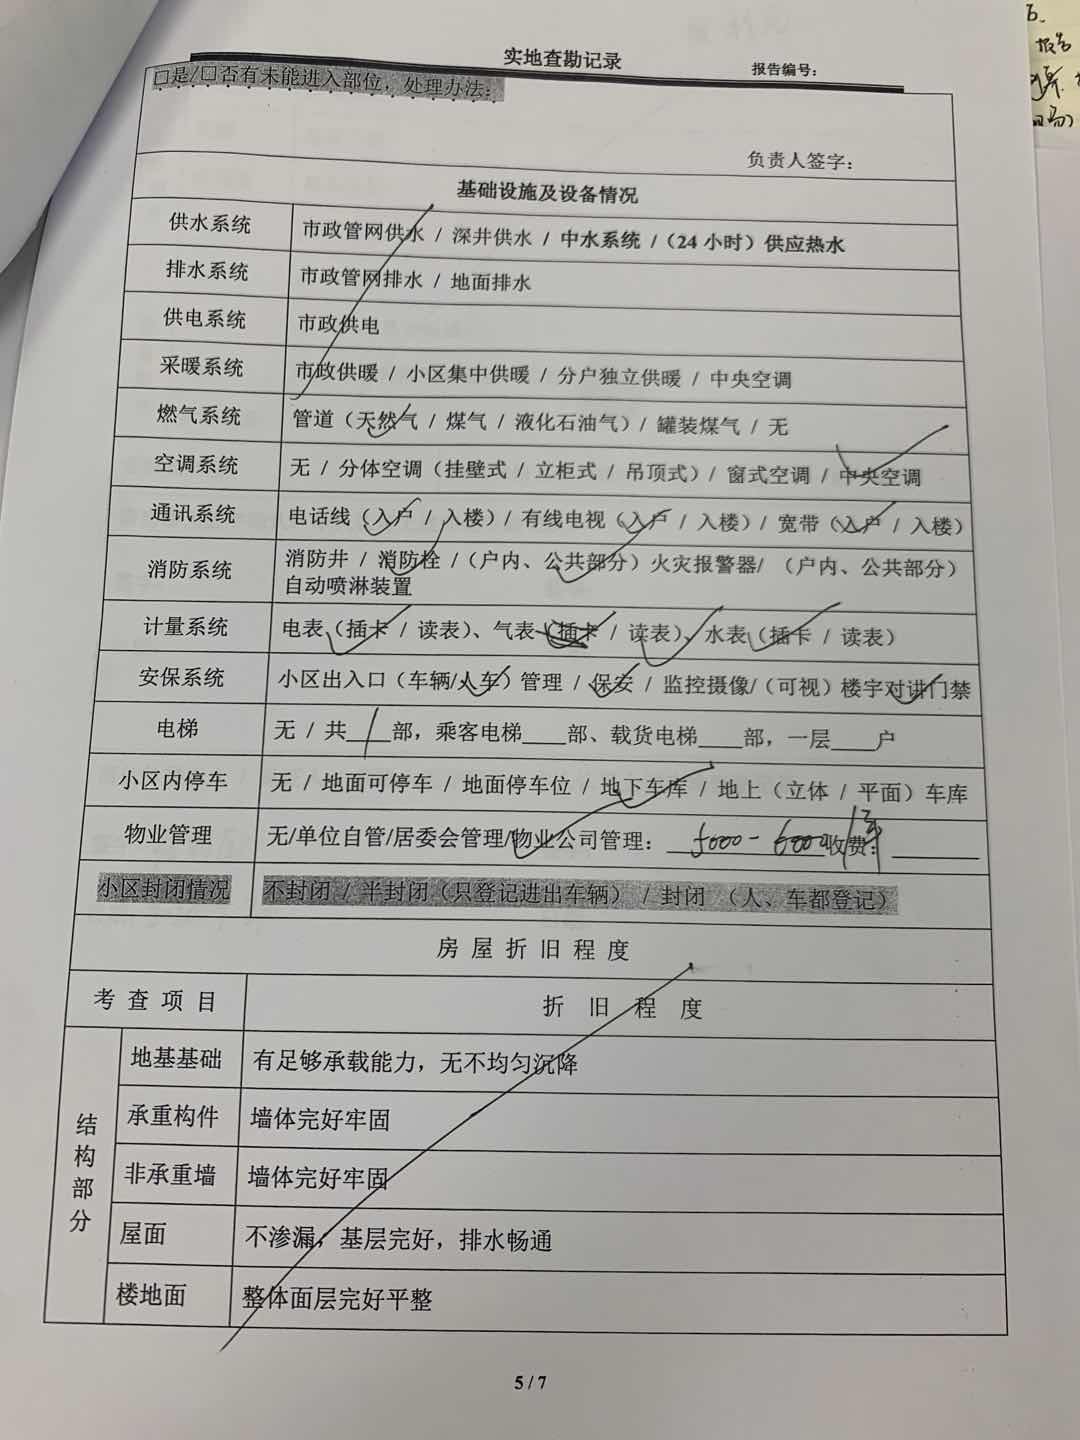 实地查勘记录
报告编号：
□是/□否有未能进入部位，处理办法：
负责人签字：
基础设施及设备情况
供水系统 市政管网供水 / 深井供水 / 中水系统 /（24 小时）供应热水
排水系统 市政管网排水 / 地面排水
供电系统 市政供电
采暖系统 市政供暖 / 小区集中供暖 / 分户独立供暖 / 中央空调
燃气系统 管道（天然气 / 煤气 / 液化石油气）/ 罐装煤气 / 无
空调系统 无 / 分体空调（挂壁式 / 立柜式 / 吊顶式）/ 窗式空调 / 中央空调
通讯系统 电话线（入户 / 入楼）/ 有线电视（入户 / 入楼）/ 宽带（入户 / 入楼）
消防系统 消防井 / 消防栓 /（户内、公共部分）火灾报警器/ （户内、公共部分）
自动喷淋装置
计量系统 电表（插卡 / 读表）、气表（插卡 / 读表）、水表（插卡 / 读表）
安保系统 小区出入口（车辆/人车）管理 / 保安 / 监控摄像/（可视）楼宇对讲门禁
电梯 无 / 共 1 部，乘客电梯____部、载货电梯____部，一层____户
小区内停车 无 / 地面可停车 / 地面停车位 / 地下车库 / 地上（立体 / 平面）车库
物业管理 无/单位自管/居委会管理/物业公司管理： 5000-6000/年 收费：
小区封闭情况 不封闭 / 半封闭（只登记进出车辆） / 封闭 （人、车都登记）
房屋折旧程度
考查项目 折旧程度
结构部分
地基基础 有足够承载能力，无不均匀沉降
承重构件 墙体完好牢固
非承重墙 墙体完好牢固
屋面 不渗漏，基层完好，排水畅通
楼地面 整体面层完好平整
5 / 7
报告